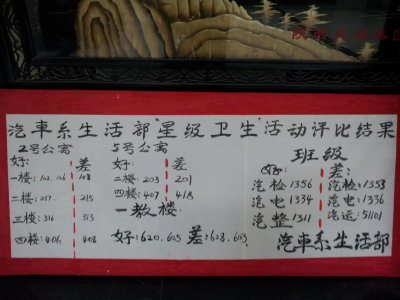 汽車系生活部"星级卫生"活动评比结果
2号公寓
好: 差
一楼: 102.106 108
二楼: 217. 215
三楼: 316 313
四楼: 406 408
5号公寓
好: 差
二楼: 203 201
四楼: 407 418
一教楼
好: 620.605 差: 623.603
班级
好: 差:
汽检 1356 汽检: 1353
汽电 1334 汽电: 1336
汽整 1311 汽运: 51101
汽車系生活部